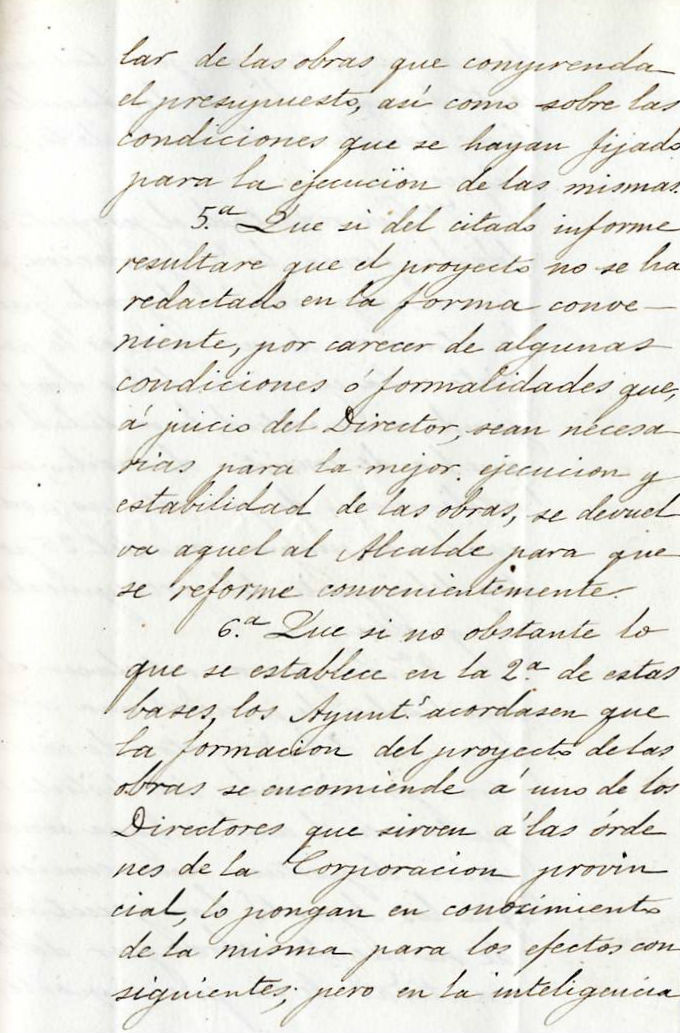 lar de las obras que comprenda
el presupuesto, así como sobre las
condiciones que se hayan fijado
para la ejecucion de las mismas.
5.ª Que si del citado informe
resultare que el proyecto no se ha
redactado en la forma conve-
niente, por carecer de algunas
condiciones ó formalidades que,
á juicio del Director, sean necesa
rias para la mejor ejecucion y
estabilidad de las obras, se devuel
va aquel al Alcalde para que
se reforme convenientemente.
6.ª Que si no obstante lo
que se establece en la 2.ª de estas
bases, los Ayunt.s acordasen que
la formacion del proyecto de las
obras se encomiende á uno de los
Directores que sirven á las órde
nes de la Corporacion provin
cial, lo pongan en conosimiento
de la misma para los efectos con
siguientes; pero en la inteligencia